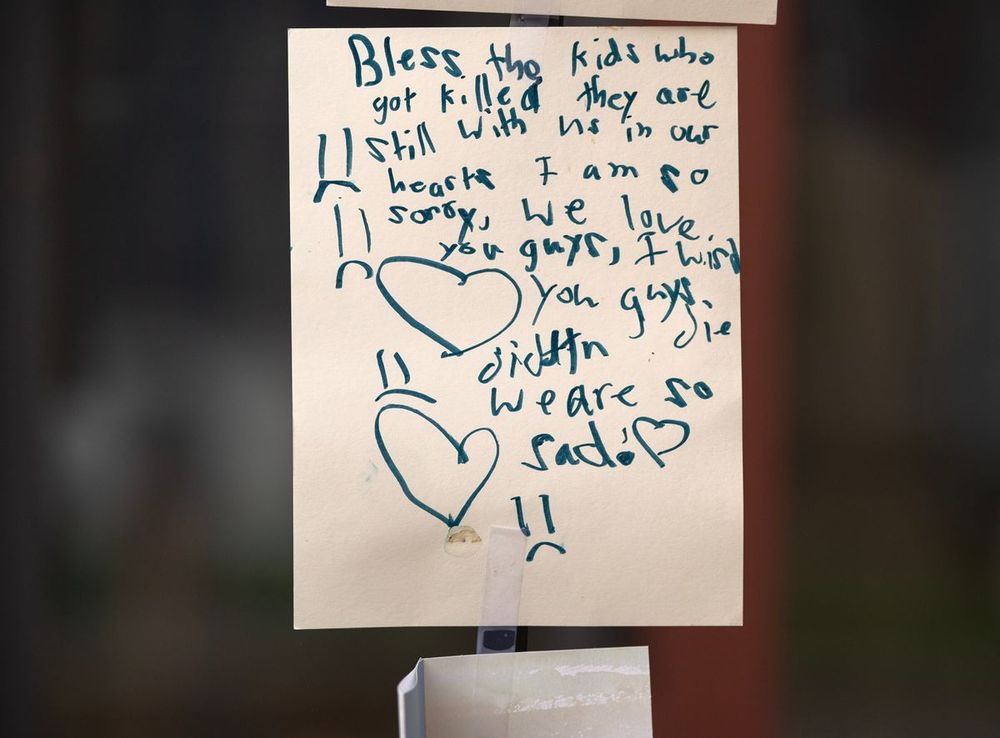 Bless the kids who
got killed they are
still with us in our
hearts I am so
sorry, we love
you guys, I wish
you guys.
die
didtn
we are so
sad!